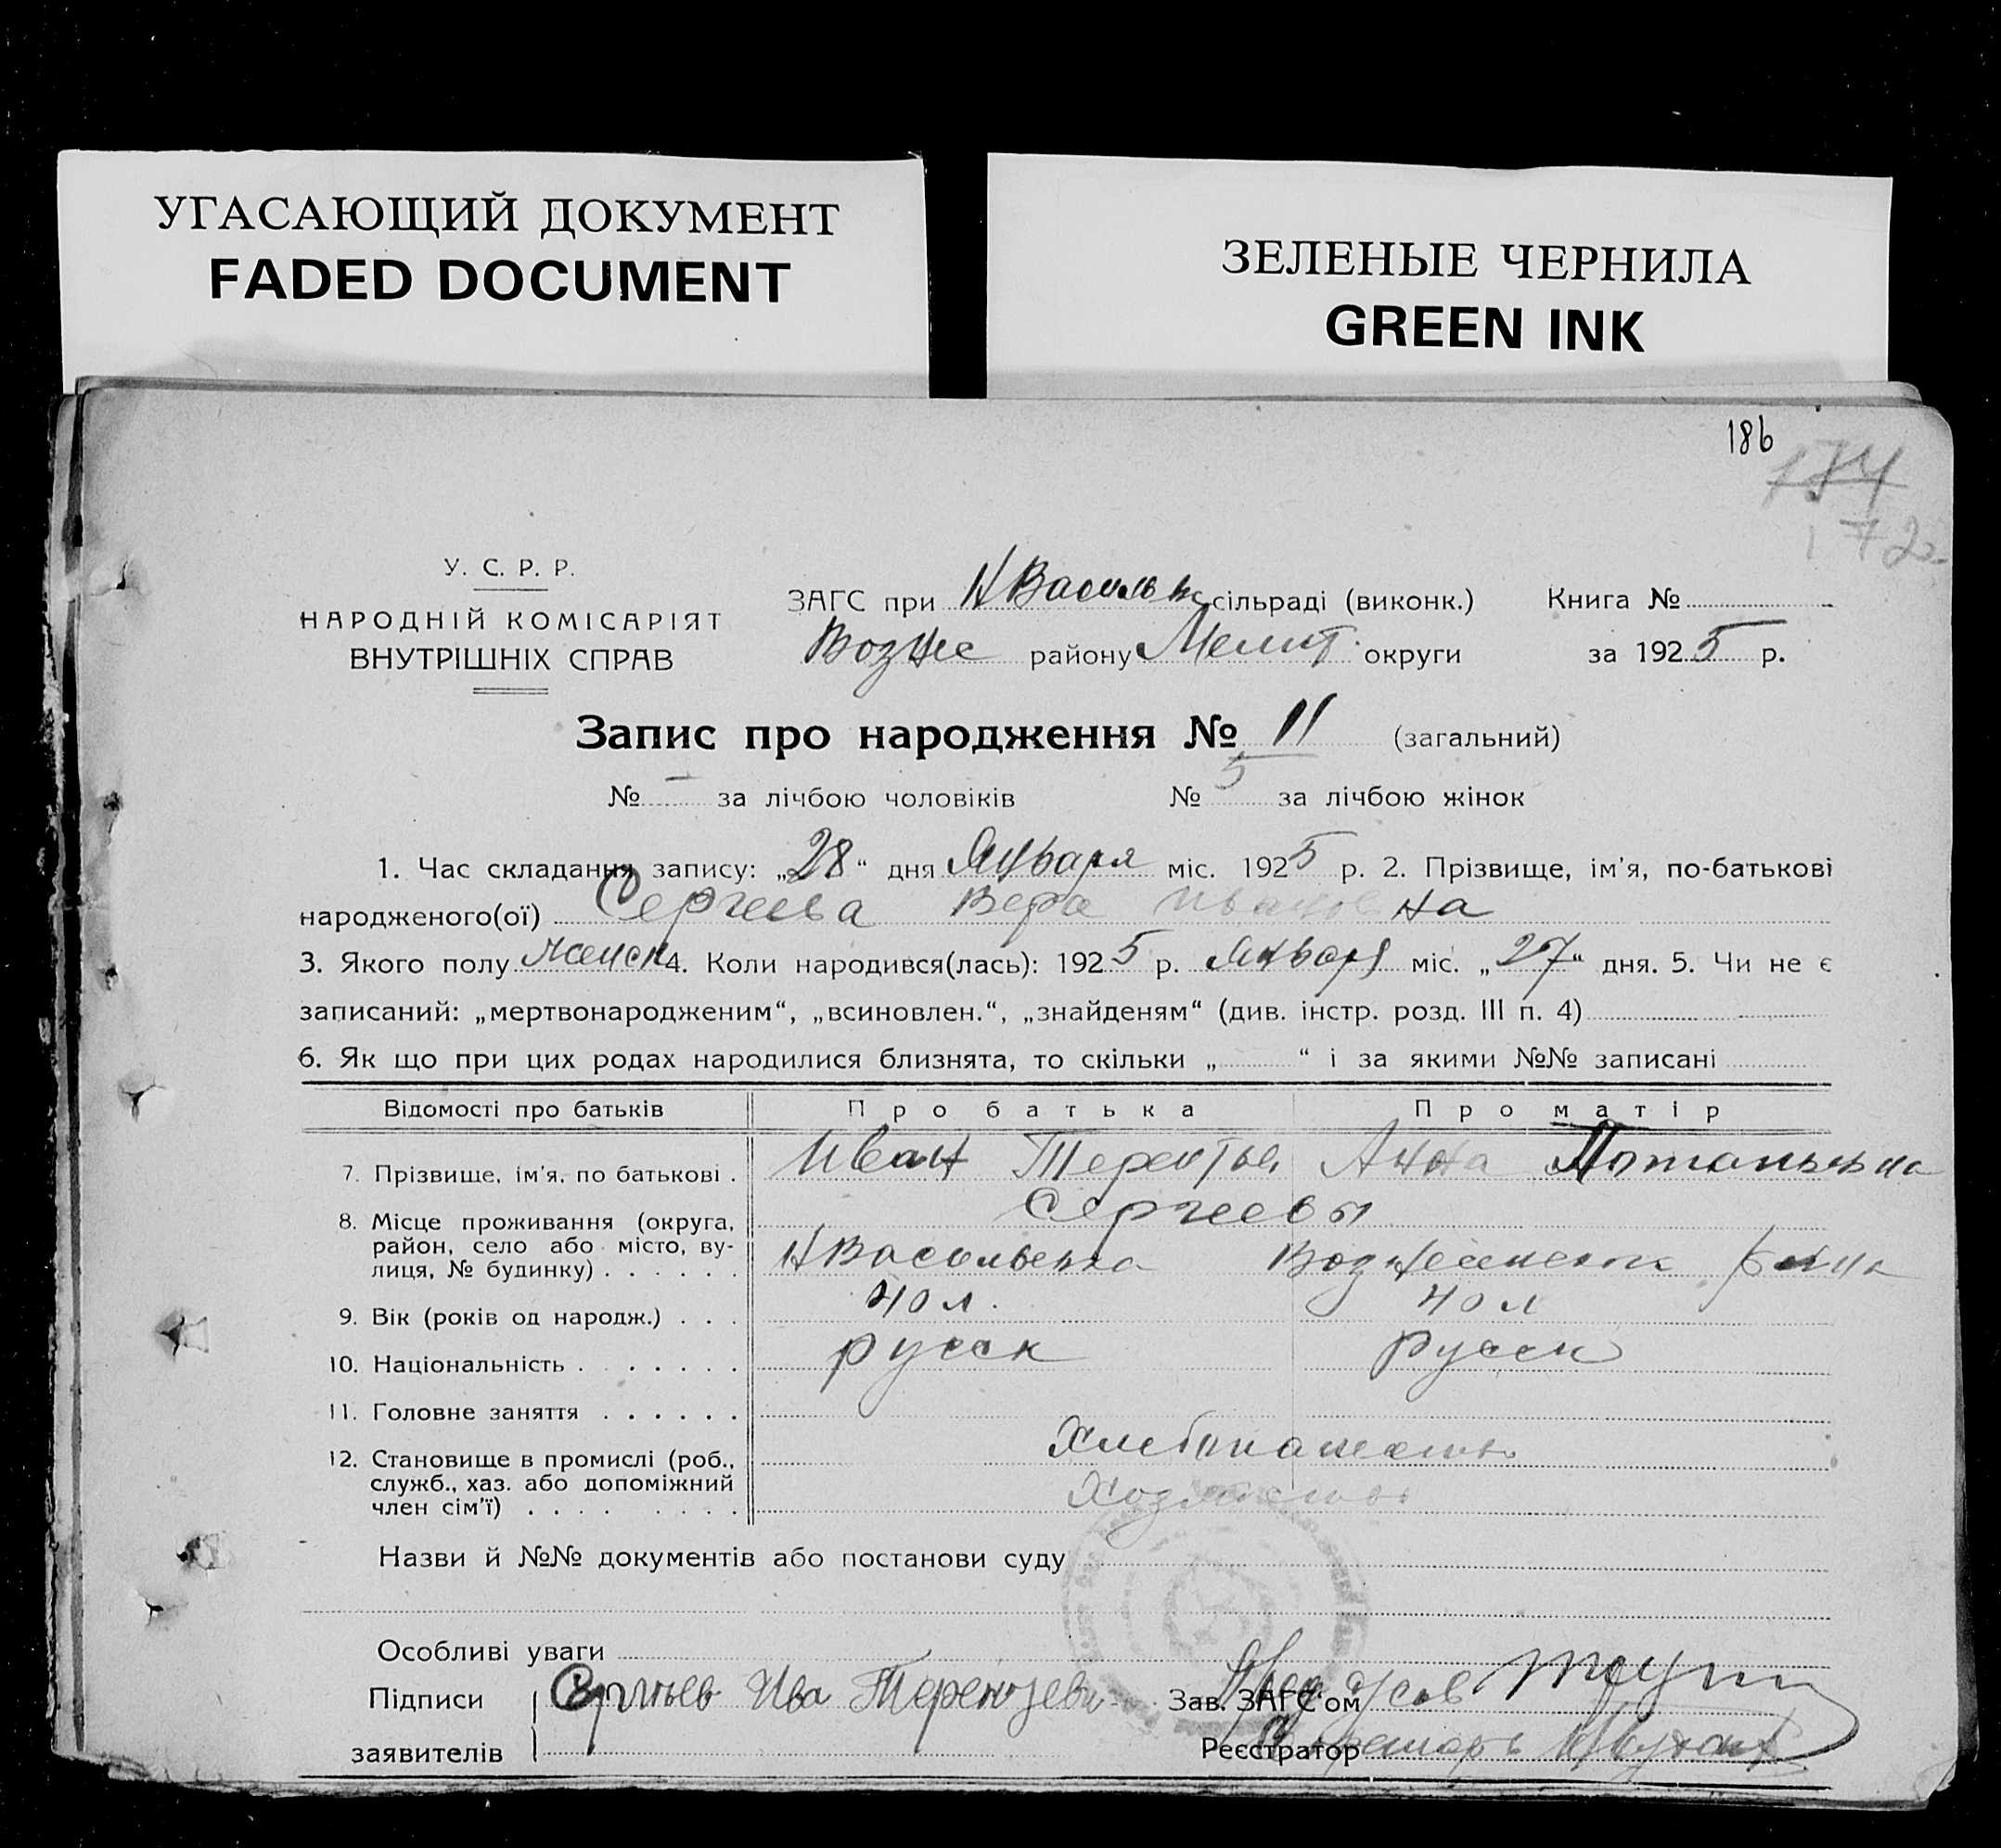 УГАСАЮЩИЙ ДОКУМЕНТ
FADED DOCUMENT
ЗЕЛЕНЫЕ ЧЕРНИЛА
GREEN INK
186
174
172
У. С. Р. Р.
НАРОДНІЙ КОМІСАРІЯТ
ВНУТРІШНІХ СПРАВ
ЗАГС при Н Васильвс сільраді (виконк.) Книга №
Вознес району Мелит. округи за 1925 р.
Запис про народження № 11 (загальний)
№ – за лічбою чоловіків № 5 за лічбою жінок
1. Час складання запису: „28“ дня Января міс. 1925 р. 2. Прізвище, ім'я, по-батькові
народженого(ої) Сергеева Вера Ивановна
3. Якого полу женск 4. Коли народився(лась): 1925 р. Января міс. „27“ дня. 5. Чи не є
записаний: „мертвонародженим“, „всиновлен.“, „знайденям“ (див. інстр. розд. III п. 4)
6. Як що при цих родах народилися близнята, то скільки „ “ і за якими №№ записані
Відомості про батьків Про батька Про матір
7. Прізвище, ім'я, по батькові . Иван Терентьев Анна Потапьевна
Сергеевы
8. Місце проживання (округа, район, село або місто, ву-
лиця, № будинку) . . . . . . Н Васильевка Вознесенск
9. Вік (років од народж.) . . . 40 л. 40 л
10. Національність . . . . . . . русск русск
11. Головне заняття . . . . . .
Хлебопашество
12. Становище в промислі (роб.,
служб., хаз. або допоміжний
член сім'ї) . . . . . . . . Хозяева
Назви й №№ документів або постанови суду
Особливі уваги
Підписи Сергеев Ива Терентеви Зав. ЗАГС'ом
заявителів Реєстратор Секретарь